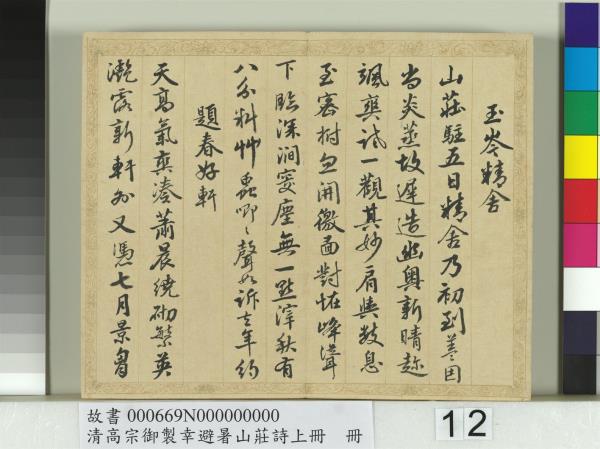 玉岑精舍
山莊駐五日精舍乃初到蓋因
尚炎蒸故遲造幽奧新晴趂
颯爽試一觀其妙肩輿數息
至密樹忽開徼面對怪峰聳
下臨深澗窔塵無一點滓秋有
八分料艸蟲唧〻聲如訴去年約
題春好軒
天高氣爽凌蕭晨繞砌繁英
瀼露新軒外又憑七月景
故書 000669N000000000
清高宗御製幸避暑山莊詩上冊 冊
12